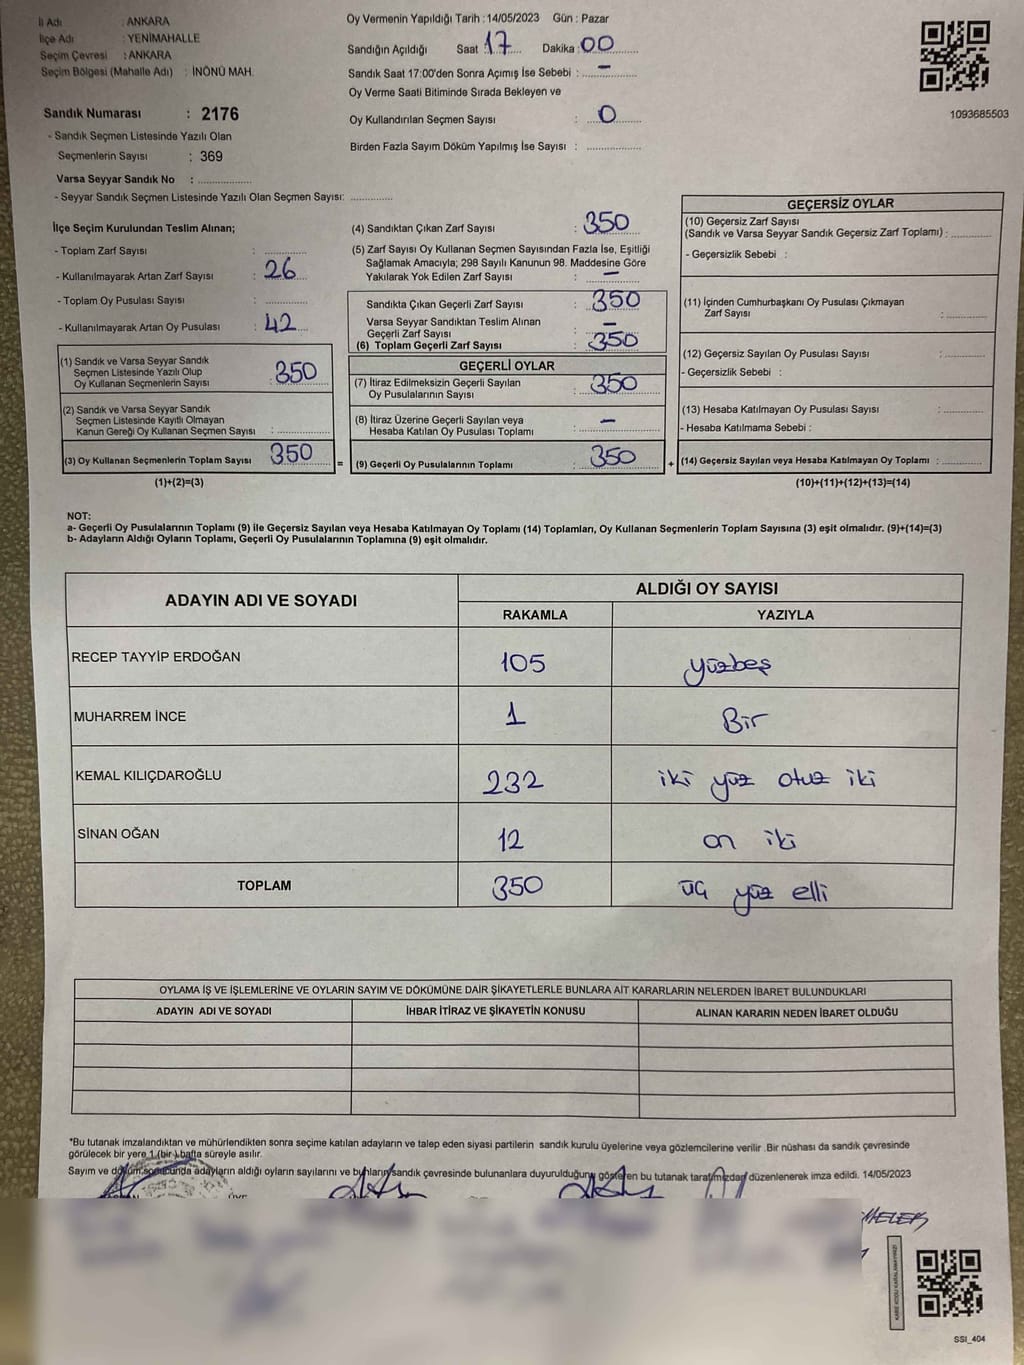 İl Adı : ANKARA
İlçe Adı : YENİMAHALLE
Seçim Çevresi : ANKARA
Seçim Bölgesi (Mahalle Adı) : İNÖNÜ MAH.
Sandık Numarası : 2176
- Sandık Seçmen Listesinde Yazılı Olan
Seçmenlerin Sayısı : 369
Varsa Seyyar Sandık No : ..................
- Seyyar Sandık Seçmen Listesinde Yazılı Olan Seçmen Sayısı: ..............
Oy Vermenin Yapıldığı Tarih : 14/05/2023 Gün : Pazar
Sandığın Açıldığı Saat : 17 Dakika : 00
Sandık Saat 17:00'den Sonra Açımış İse Sebebi : -
Oy Verme Saati Bitiminde Sırada Bekleyen ve
Oy Kullandırılan Seçmen Sayısı : 0
Birden Fazla Sayım Döküm Yapılmış İse Sayısı : ..................
1093685503
İlçe Seçim Kurulundan Teslim Alınan;
- Toplam Zarf Sayısı : ..............
- Kullanılmayarak Artan Zarf Sayısı : 26
- Toplam Oy Pusulası Sayısı : ..............
- Kullanılmayarak Artan Oy Pusulası : 42
(1) Sandık ve Varsa Seyyar Sandık
Seçmen Listesinde Yazılı Olup
Oy Kullanan Seçmenlerin Sayısı : 350
(2) Sandık ve Varsa Seyyar Sandık
Seçmen Listesinde Kayıtlı Olmayan
Kanun Gereği Oy Kullanan Seçmen Sayısı : ..............
(3) Oy Kullanan Seçmenlerin Toplam Sayısı : 350
(1)+(2)=(3)
(4) Sandıktan Çıkan Zarf Sayısı : 350
(5) Zarf Sayısı Oy Kullanan Seçmen Sayısından Fazla İse, Eşitliği
Sağlamak Amacıyla; 298 Sayılı Kanunun 98. Maddesine Göre
Yakılarak Yok Edilen Zarf Sayısı : -
Sandıkta Çıkan Geçerli Zarf Sayısı : 350
Varsa Seyyar Sandıktan Teslim Alınan
Geçerli Zarf Sayısı : -
(6) Toplam Geçerli Zarf Sayısı : 350
GEÇERLİ OYLAR
(7) İtiraz Edilmeksizin Geçerli Sayılan
Oy Pusulalarının Sayısı : 350
(8) İtiraz Üzerine Geçerli Sayılan veya
Hesaba Katılan Oy Pusulası Toplamı : -
= (9) Geçerli Oy Pusulalarının Toplamı : 350
GEÇERSİZ OYLAR
(10) Geçersiz Zarf Sayısı
(Sandık ve Varsa Seyyar Sandık Geçersiz Zarf Toplamı) : ..............
- Geçersizlik Sebebi :
(11) İçinden Cumhurbaşkanı Oy Pusulası Çıkmayan
Zarf Sayısı : ..............
(12) Geçersiz Sayılan Oy Pusulası Sayısı : ..............
- Geçersizlik Sebebi :
(13) Hesaba Katılmayan Oy Pusulası Sayısı : ..............
- Hesaba Katılmama Sebebi :
+ (14) Geçersiz Sayılan veya Hesaba Katılmayan Oy Toplamı : ..............
(10)+(11)+(12)+(13)=(14)
NOT:
a- Geçerli Oy Pusulalarının Toplamı (9) ile Geçersiz Sayılan veya Hesaba Katılmayan Oy Toplamı (14) Toplamları, Oy Kullanan Seçmenlerin Toplam Sayısına (3) eşit olmalıdır. (9)+(14)=(3)
b- Adayların Aldığı Oyların Toplamı, Geçerli Oy Pusulalarının Toplamına (9) eşit olmalıdır.
ADAYIN ADI VE SOYADI ALDIĞI OY SAYISI
RAKAMLA YAZIYLA
RECEP TAYYİP ERDOĞAN 105 yüzbeş
MUHARREM İNCE 1 Bir
KEMAL KILIÇDAROĞLU 232 iki yüz otuz iki
SİNAN OĞAN 12 on iki
TOPLAM 350 üç yüz elli
OYLAMA İŞ VE İŞLEMLERİNE VE OYLARIN SAYIM VE DÖKÜMÜNE DAİR ŞİKAYETLERLE BUNLARA AİT KARARLARIN NELERDEN İBARET BULUNDUKLARI
ADAYIN ADI VE SOYADI İHBAR İTİRAZ VE ŞİKAYETİN KONUSU ALINAN KARARIN NEDEN İBARET OLDUĞU
*Bu tutanak imzalandıktan ve mühürlendikten sonra seçime katılan adayların ve talep eden siyasi partilerin sandık kurulu üyelerine veya gözlemcilerine verilir .Bir nüshası da sandık çevresinde
görülecek bir yere 1 (bir ) hafta süreyle asılır.
Sayım ve döküm sonucunda adayların aldığı oyların sayılarını ve bunların sandık çevresinde bulunanlara duyurulduğunu gösteren bu tutanak tarafımızdan düzenlenerek imza edildi. 14/05/2023
ÜYE
MELEK
SSI_404